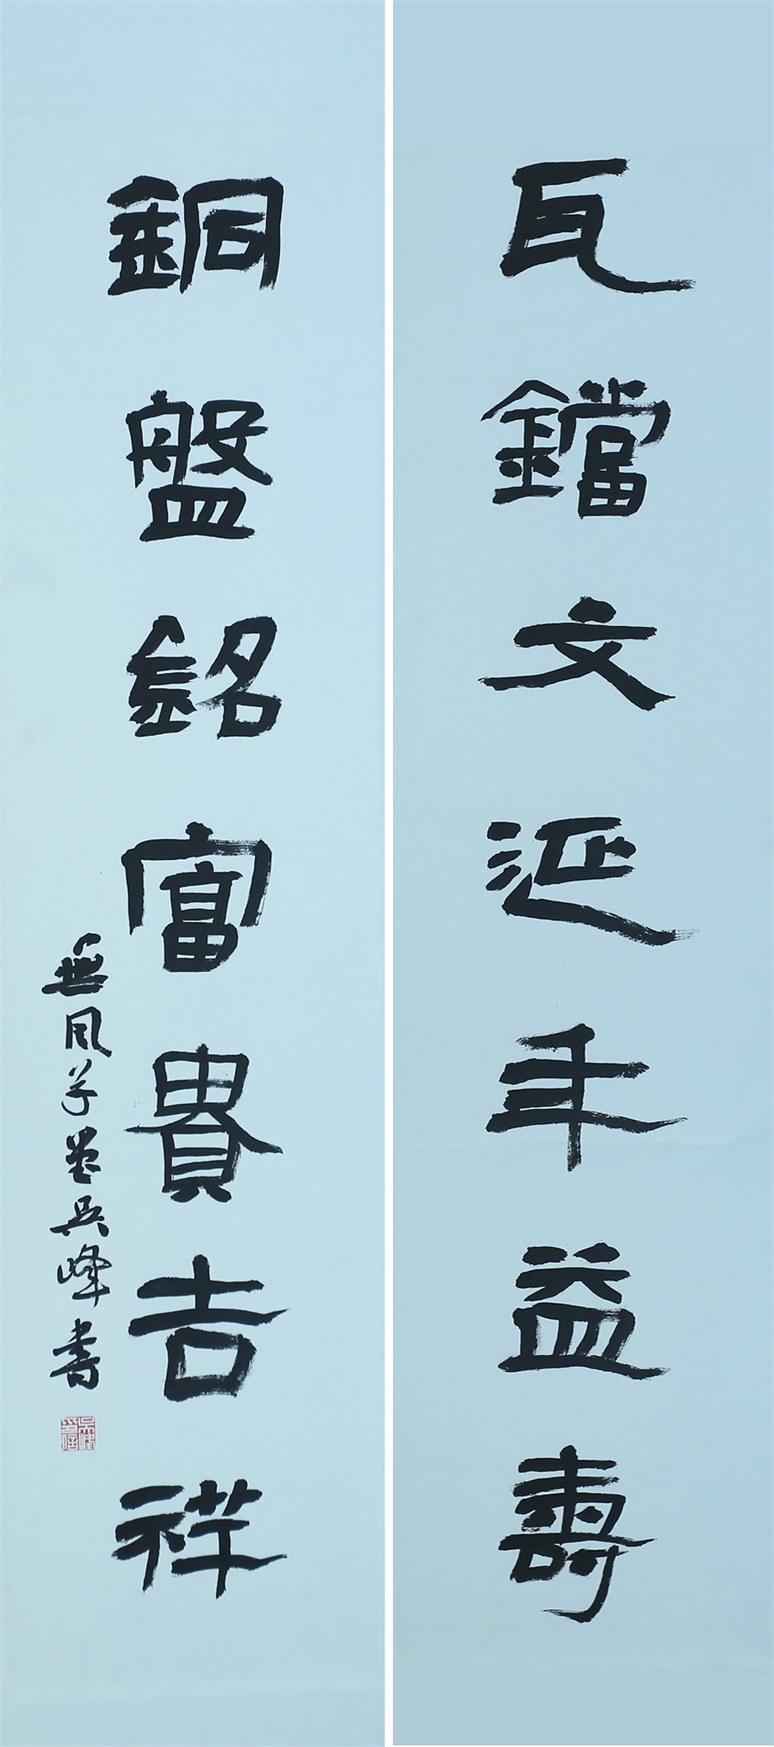 瓦鐺文延年益壽
銅盤銘富貴吉祥
無風草堂吳峰書